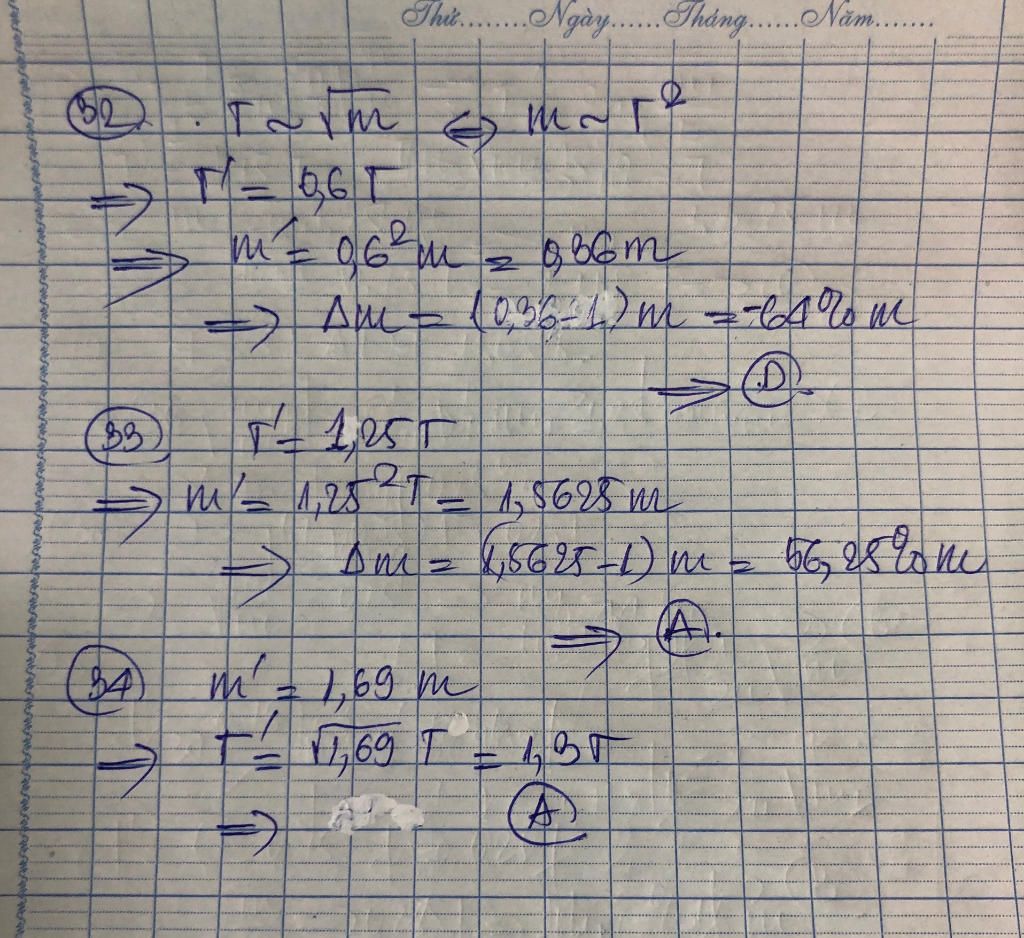 Thứ........Ngày......Tháng......Năm.......
32 . T ~ √m ⇔ m ~ T²
⇒ T' = 0,6 T
⇒ m' = 0,6² m = 0,36 m
⇒ Δm = (0,36 - 1) m = -64% m
⇒ D.
33 T' = 1,25 T
⇒ m' = 1,25² T = 1,5625 m
⇒ Δm = (1,5625 - 1) m = 56,25% m
⇒ A.
34 m' = 1,69 m
⇒ T' = √1,69 T = 1,3 T
⇒ A